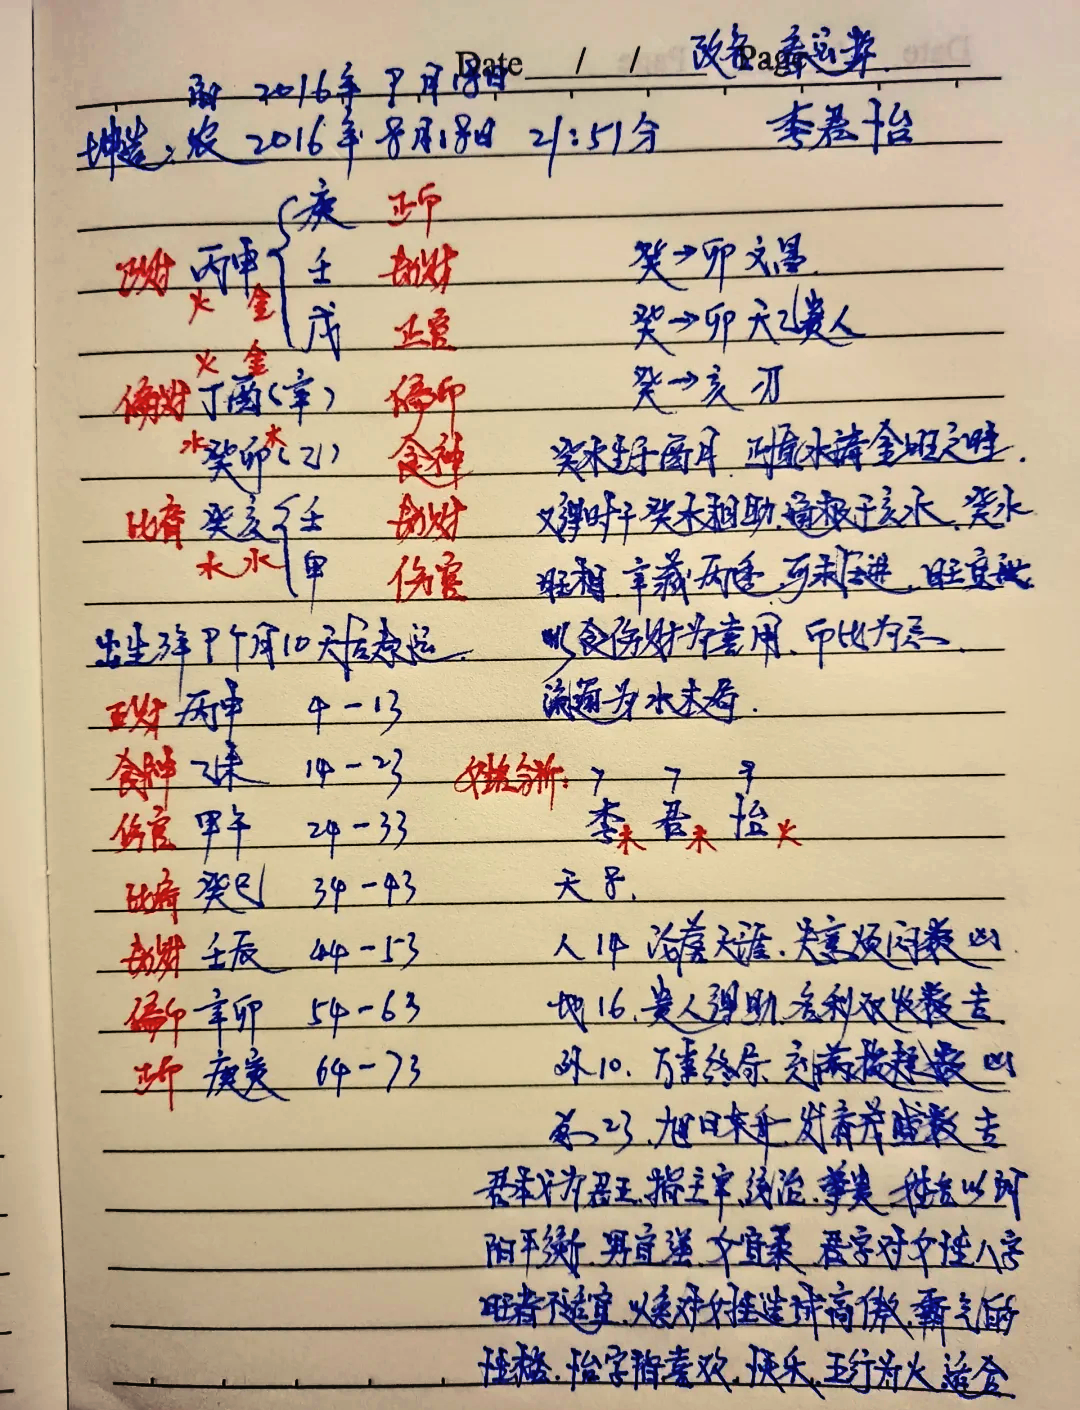 Date / / Page 改名
阳 2016年9月18日
坤造：农 2016年8月18日 21:51分 李君怡
庚 正印
正财 丙申 壬 劫财 癸→卯 文昌
火 金
戊 正官 癸→卯 天乙贵人
火 金
偏财 丁酉（辛） 偏印 癸→亥 刃
水 癸卯 木（乙） 食神 癸水生于酉月 正值水
比肩 癸亥 壬 劫财 又得时干癸水相助，通根于亥水，癸水
水 水 甲 伤官 旺相，幸截丙
出生3年9个月10天后起运 以食伤财为喜用，印比为忌，
正财 丙申 4-13 流通为水木局．
食神 乙未 14-23 姓名分析： 7 7 9
伤官 甲午 24-33 李木 君木 怡火
比肩 癸巳 34-43 天8．
劫财 壬辰 44-53 人14 沦落天涯，失意烦闷数 凶
偏印 辛卯 54-63 地16，贵人得助，名利双收数 吉
正印 庚寅 64-73 外10，万事终局，数 凶
总23，旭日东升，发育茂盛数 吉
君本义为君王，指主宰，统治，尊贵，姓名以阴
阳平衡，男宜强，女宜柔，君字对女性八字
旺者不适宜，对女性造成高傲，霸气的
性格．怡字指喜欢，快乐，五行为火，适合